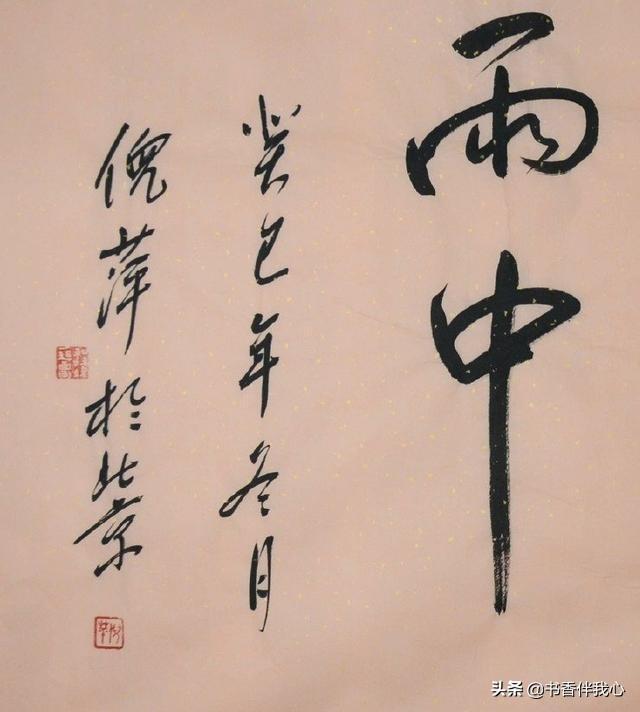 雨中
癸巳年冬月
倪萍於北京
头条 @书香伴我心